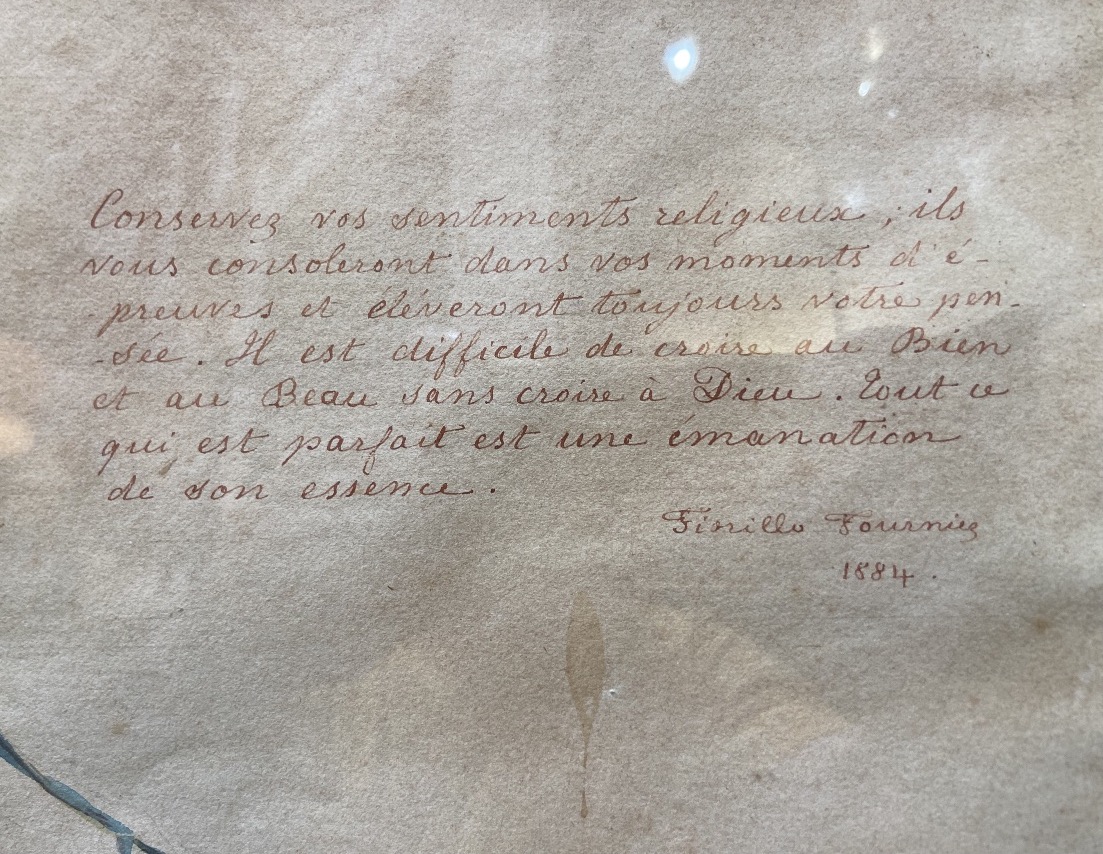 Conservez vos sentiments religieux ; ils
vous consoleront dans vos moments d'é-
-preuves et élèveront toujours votre pen-
-sée. Il est difficile de croire au Bien
et au Beau sans croire à Dieu. Tout ce
qui est parfait est une émanation
de son essence.
Fournier
1884.